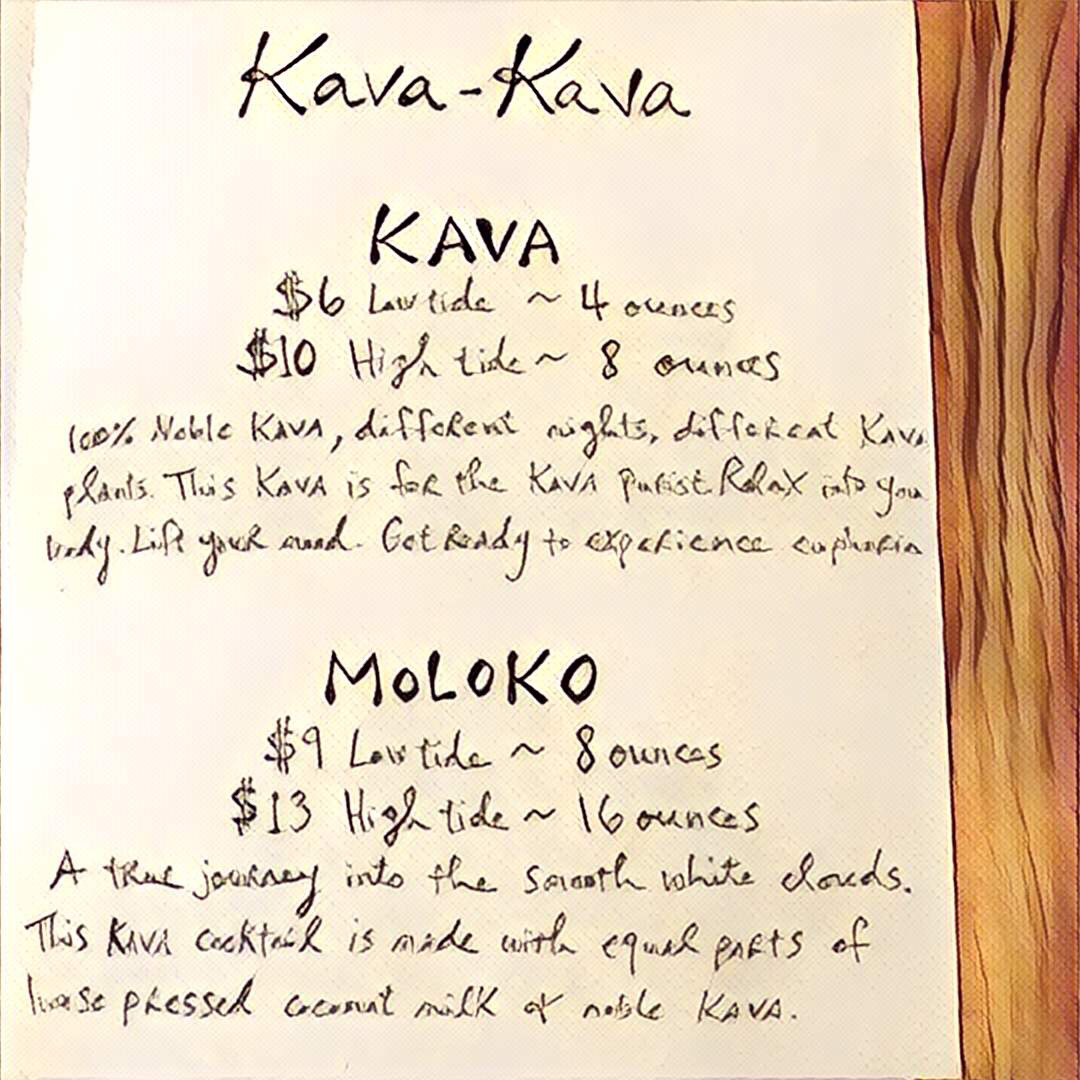 Kava-Kava
KAVA
$6 Low tide ~ 4 ounces
$10 High tide ~ 8 ounces
100% Noble KAVA, different nights, different Kava
plants. This KAVA is for the KAVA purist. Relax into your
body. Lift your mood. Get Ready to experience euphoria
MOLOKO
$9 Low tide ~ 8 ounces
$13 High tide ~ 16 ounces
A true journey into the smooth white clouds.
This KAVA cocktail is made with equal parts of
house pressed coconut milk & noble KAVA.